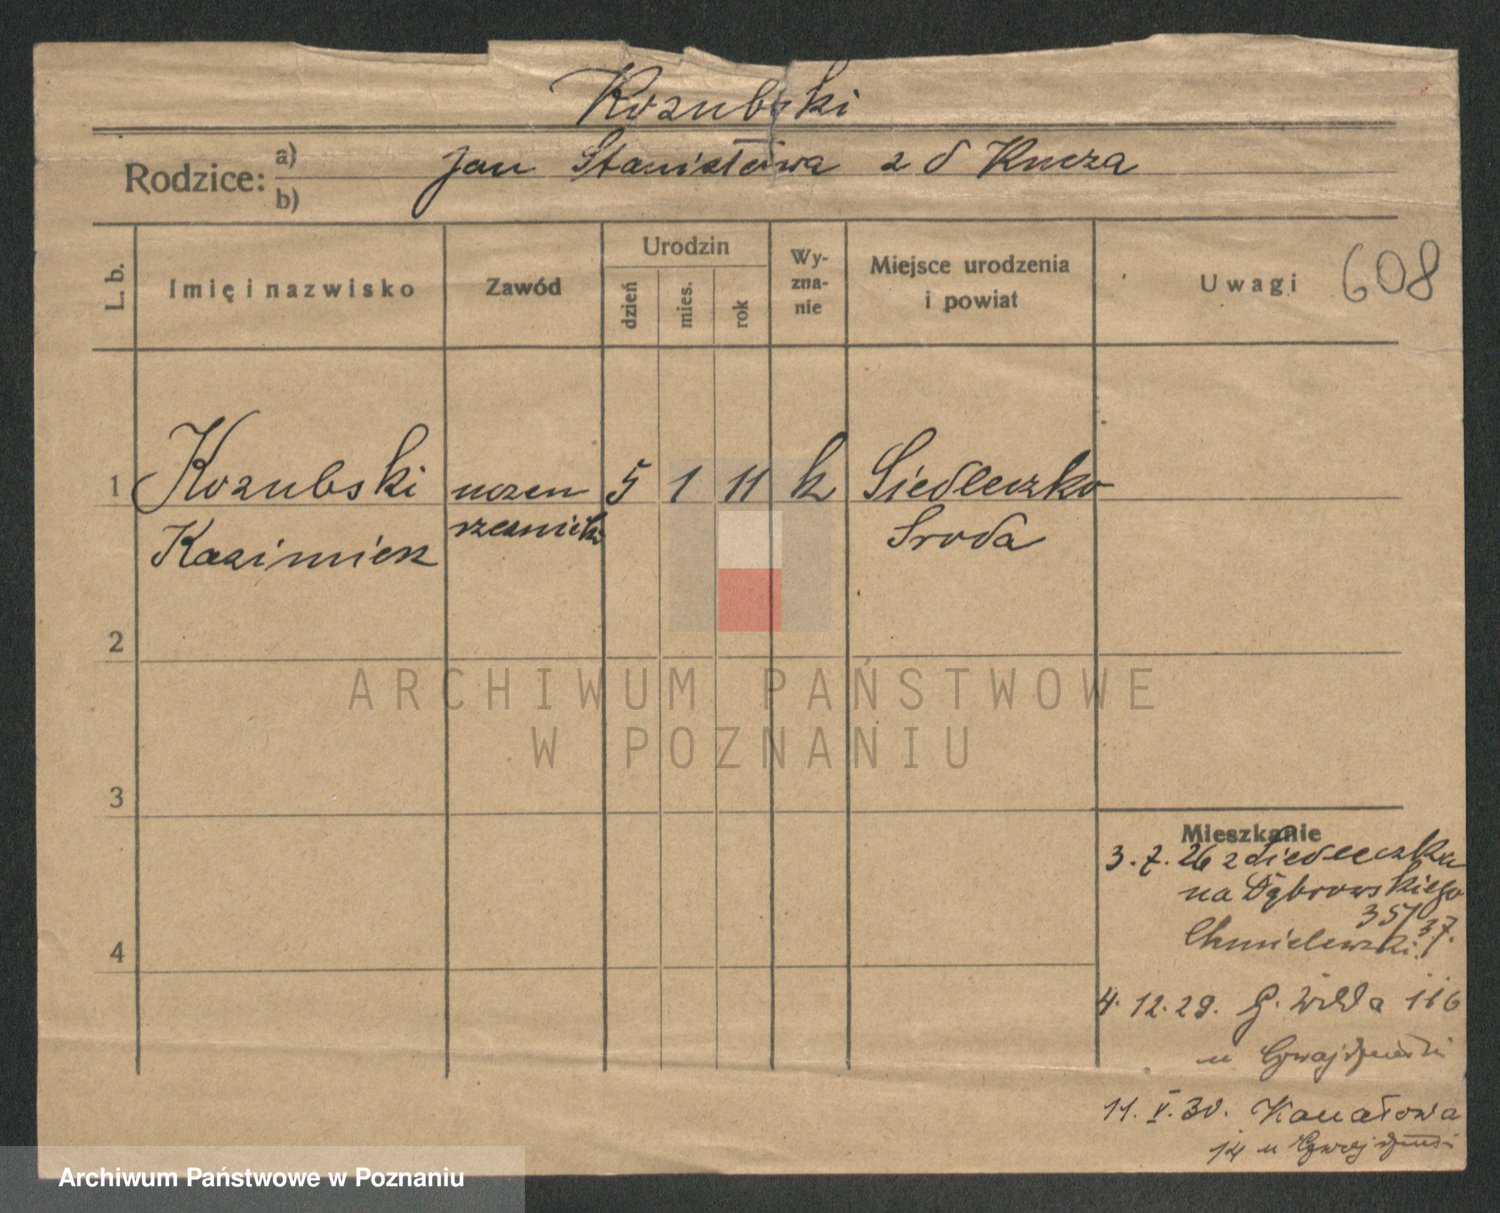 Kozubski
Rodzice: a) b) Jan Stanisława z d Kucza
L. b. Imię i nazwisko Zawód Urodzin dzień mies. rok Wy-zna-nie Miejsce urodzenia i powiat Uwagi 608
1 Kozubski uczen 5 1 11 k Siedleczko
Kazimierz rzeznicki Sroda
2
3
4
Mieszkanie
3.7.26 z Siedleczka
na Dąbrowskiego
35/37
Chmielewski
4.12.29. G. Wilda 116
u
11.V.30. Kanałowa
14 u
ARCHIWUM PAŃSTWOWE
W POZNANIU
Archiwum Państwowe w Poznaniu